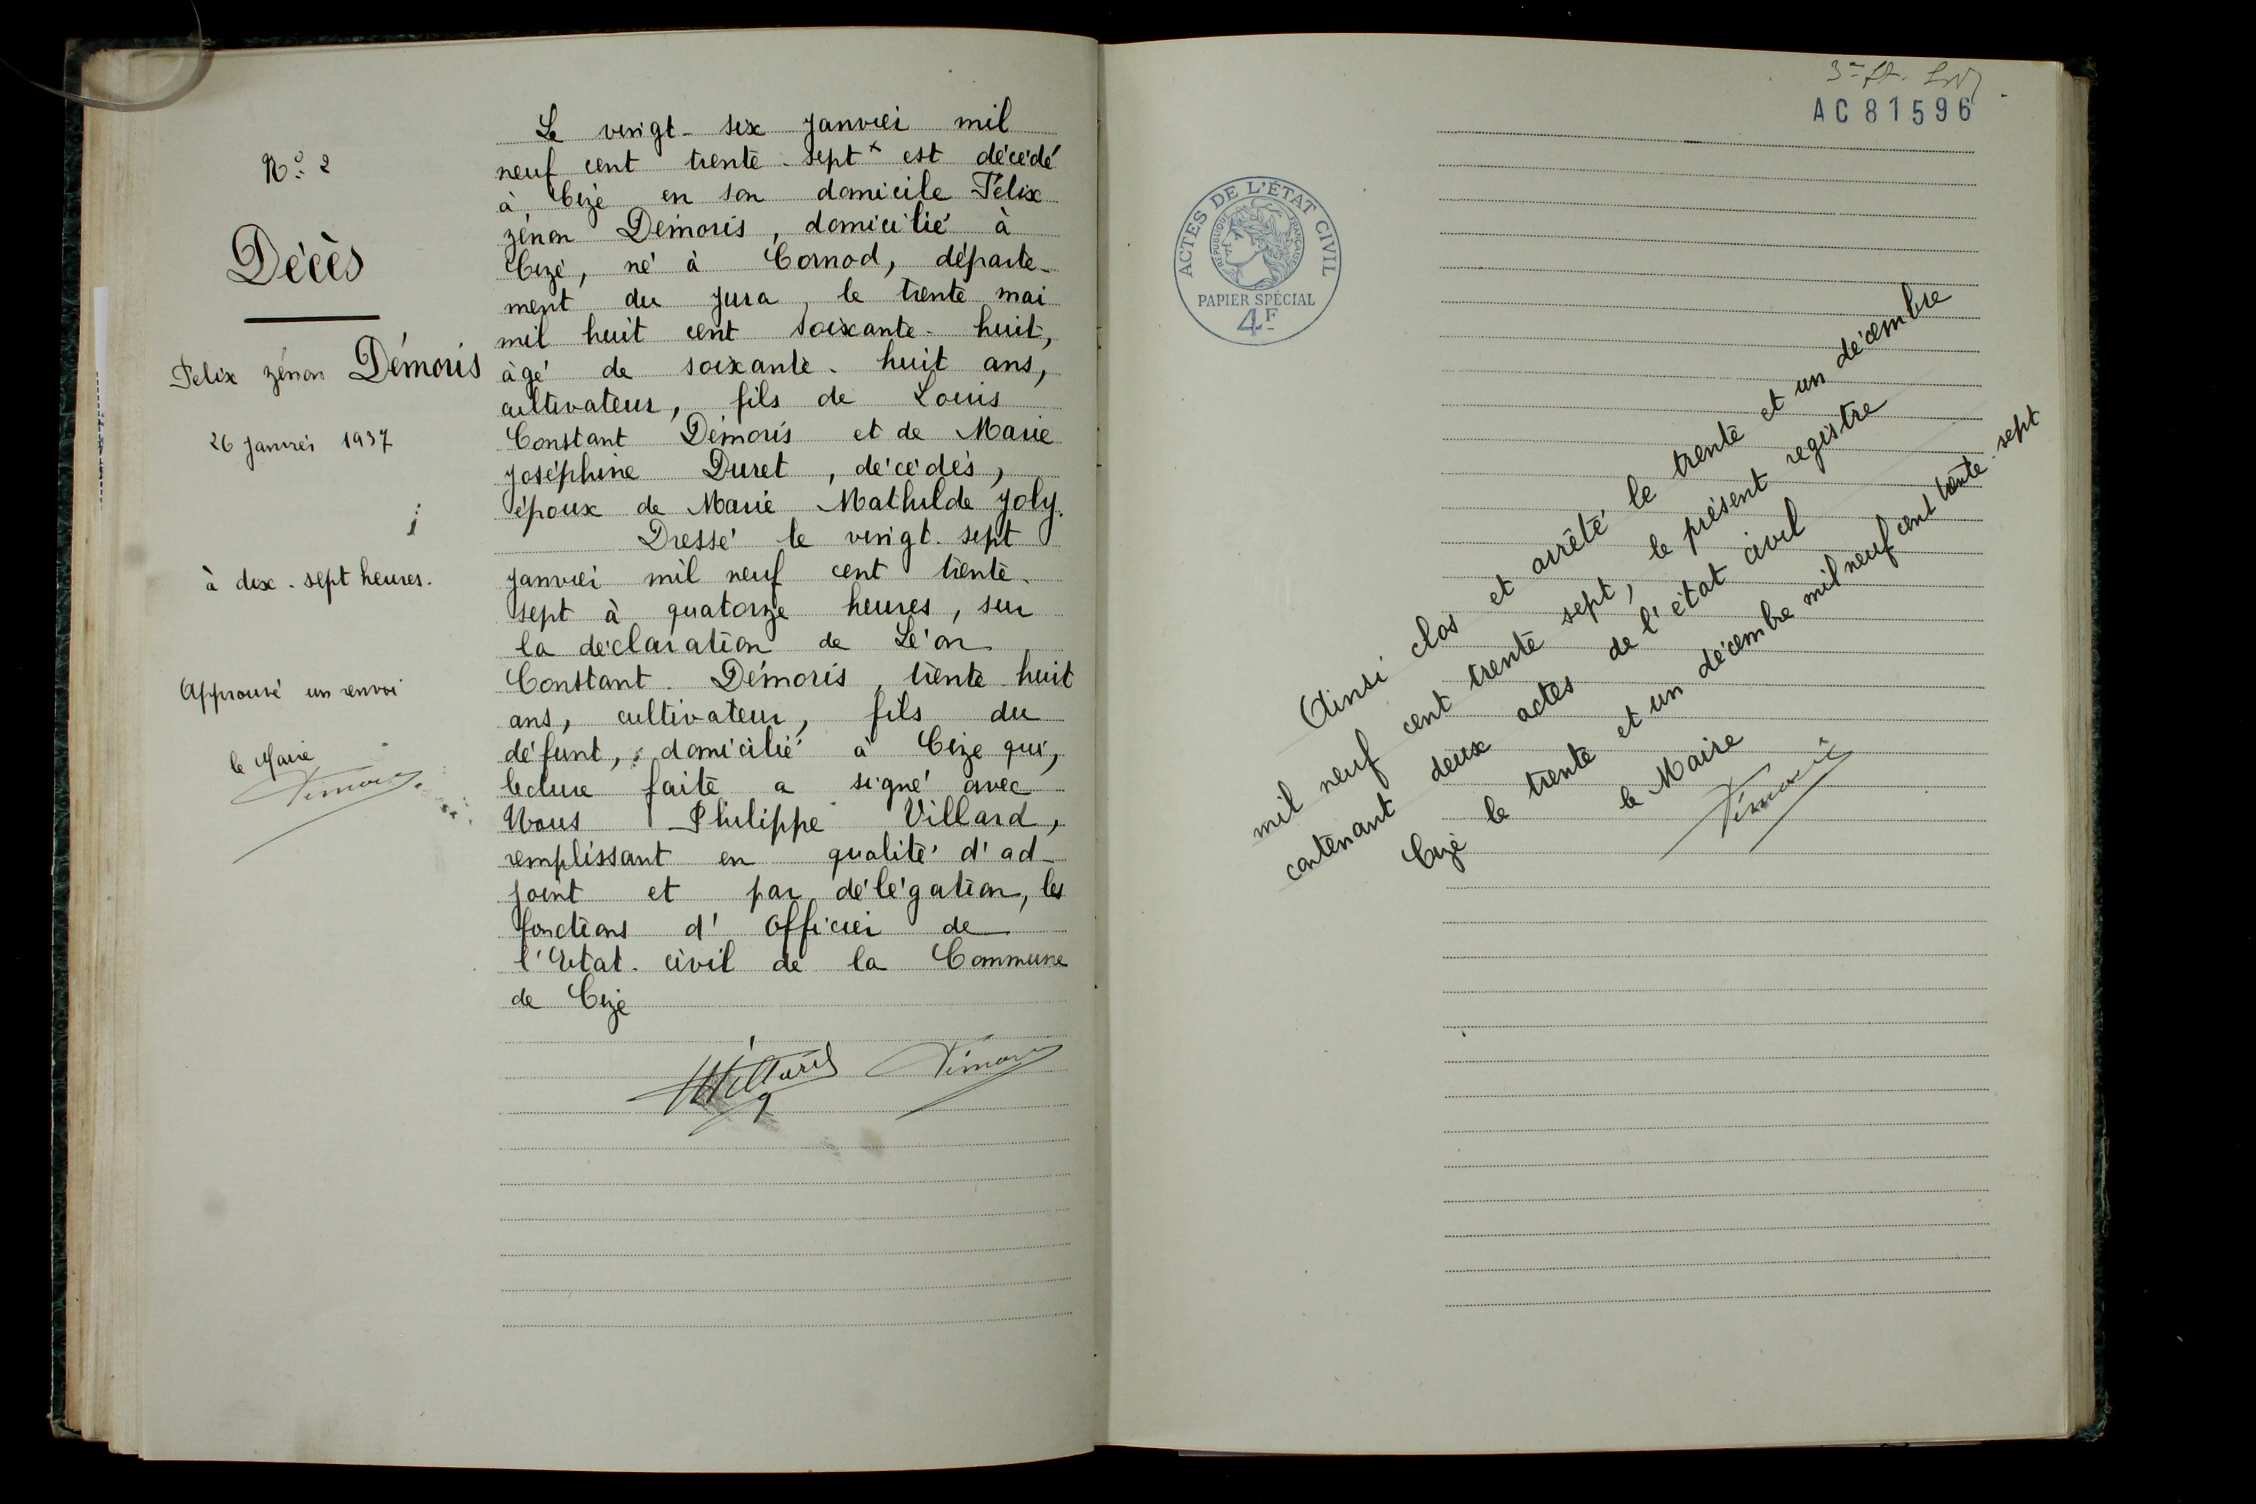 N° 2
Décès
Felix zénon Démoris
26 janvier 1937
à dix-sept heures.
Approuvé un renvoi
le Maire
Démoris
Le vingt-six janvier mil
neuf cent trente-sept x est décédé
à Cize en son domicile Félix
zénon Démoris, domicilié à
Cize, né à Cornod, départe-
ment du Jura, le trente mai
mil huit cent soixante-huit,
âgé de soixante-huit ans,
cultivateur, fils de Louis
Constant Démoris et de Marie
Joséphine Duret, décédés,
époux de Marie Mathilde Joly.
Dressé le vingt-sept
janvier mil neuf cent trente-
sept à quatorze heures, sur
la déclaration de Léon
Constant Démoris, trente-huit
ans, cultivateur, fils du
défunt, domicilié à Cize qui,
lecture faite a signé avec
Nous Philippe Villard,
remplissant en qualité d'ad-
joint et par délégation, les
fonctions d'Officier de
l'Etat-civil de la Commune
de Cize
Villard Démoris
AC 81596
ACTES DE L'ÉTAT CIVIL
RÉPUBLIQUE FRANÇAISE
PAPIER SPÉCIAL
4F
Ainsi clos et arrêté le trente et un décembre
mil neuf cent trente sept, le présent registre
contenant deux actes de l'état civil
Cize le trente et un décembre mil neuf cent trente-sept
le Maire
Démoris